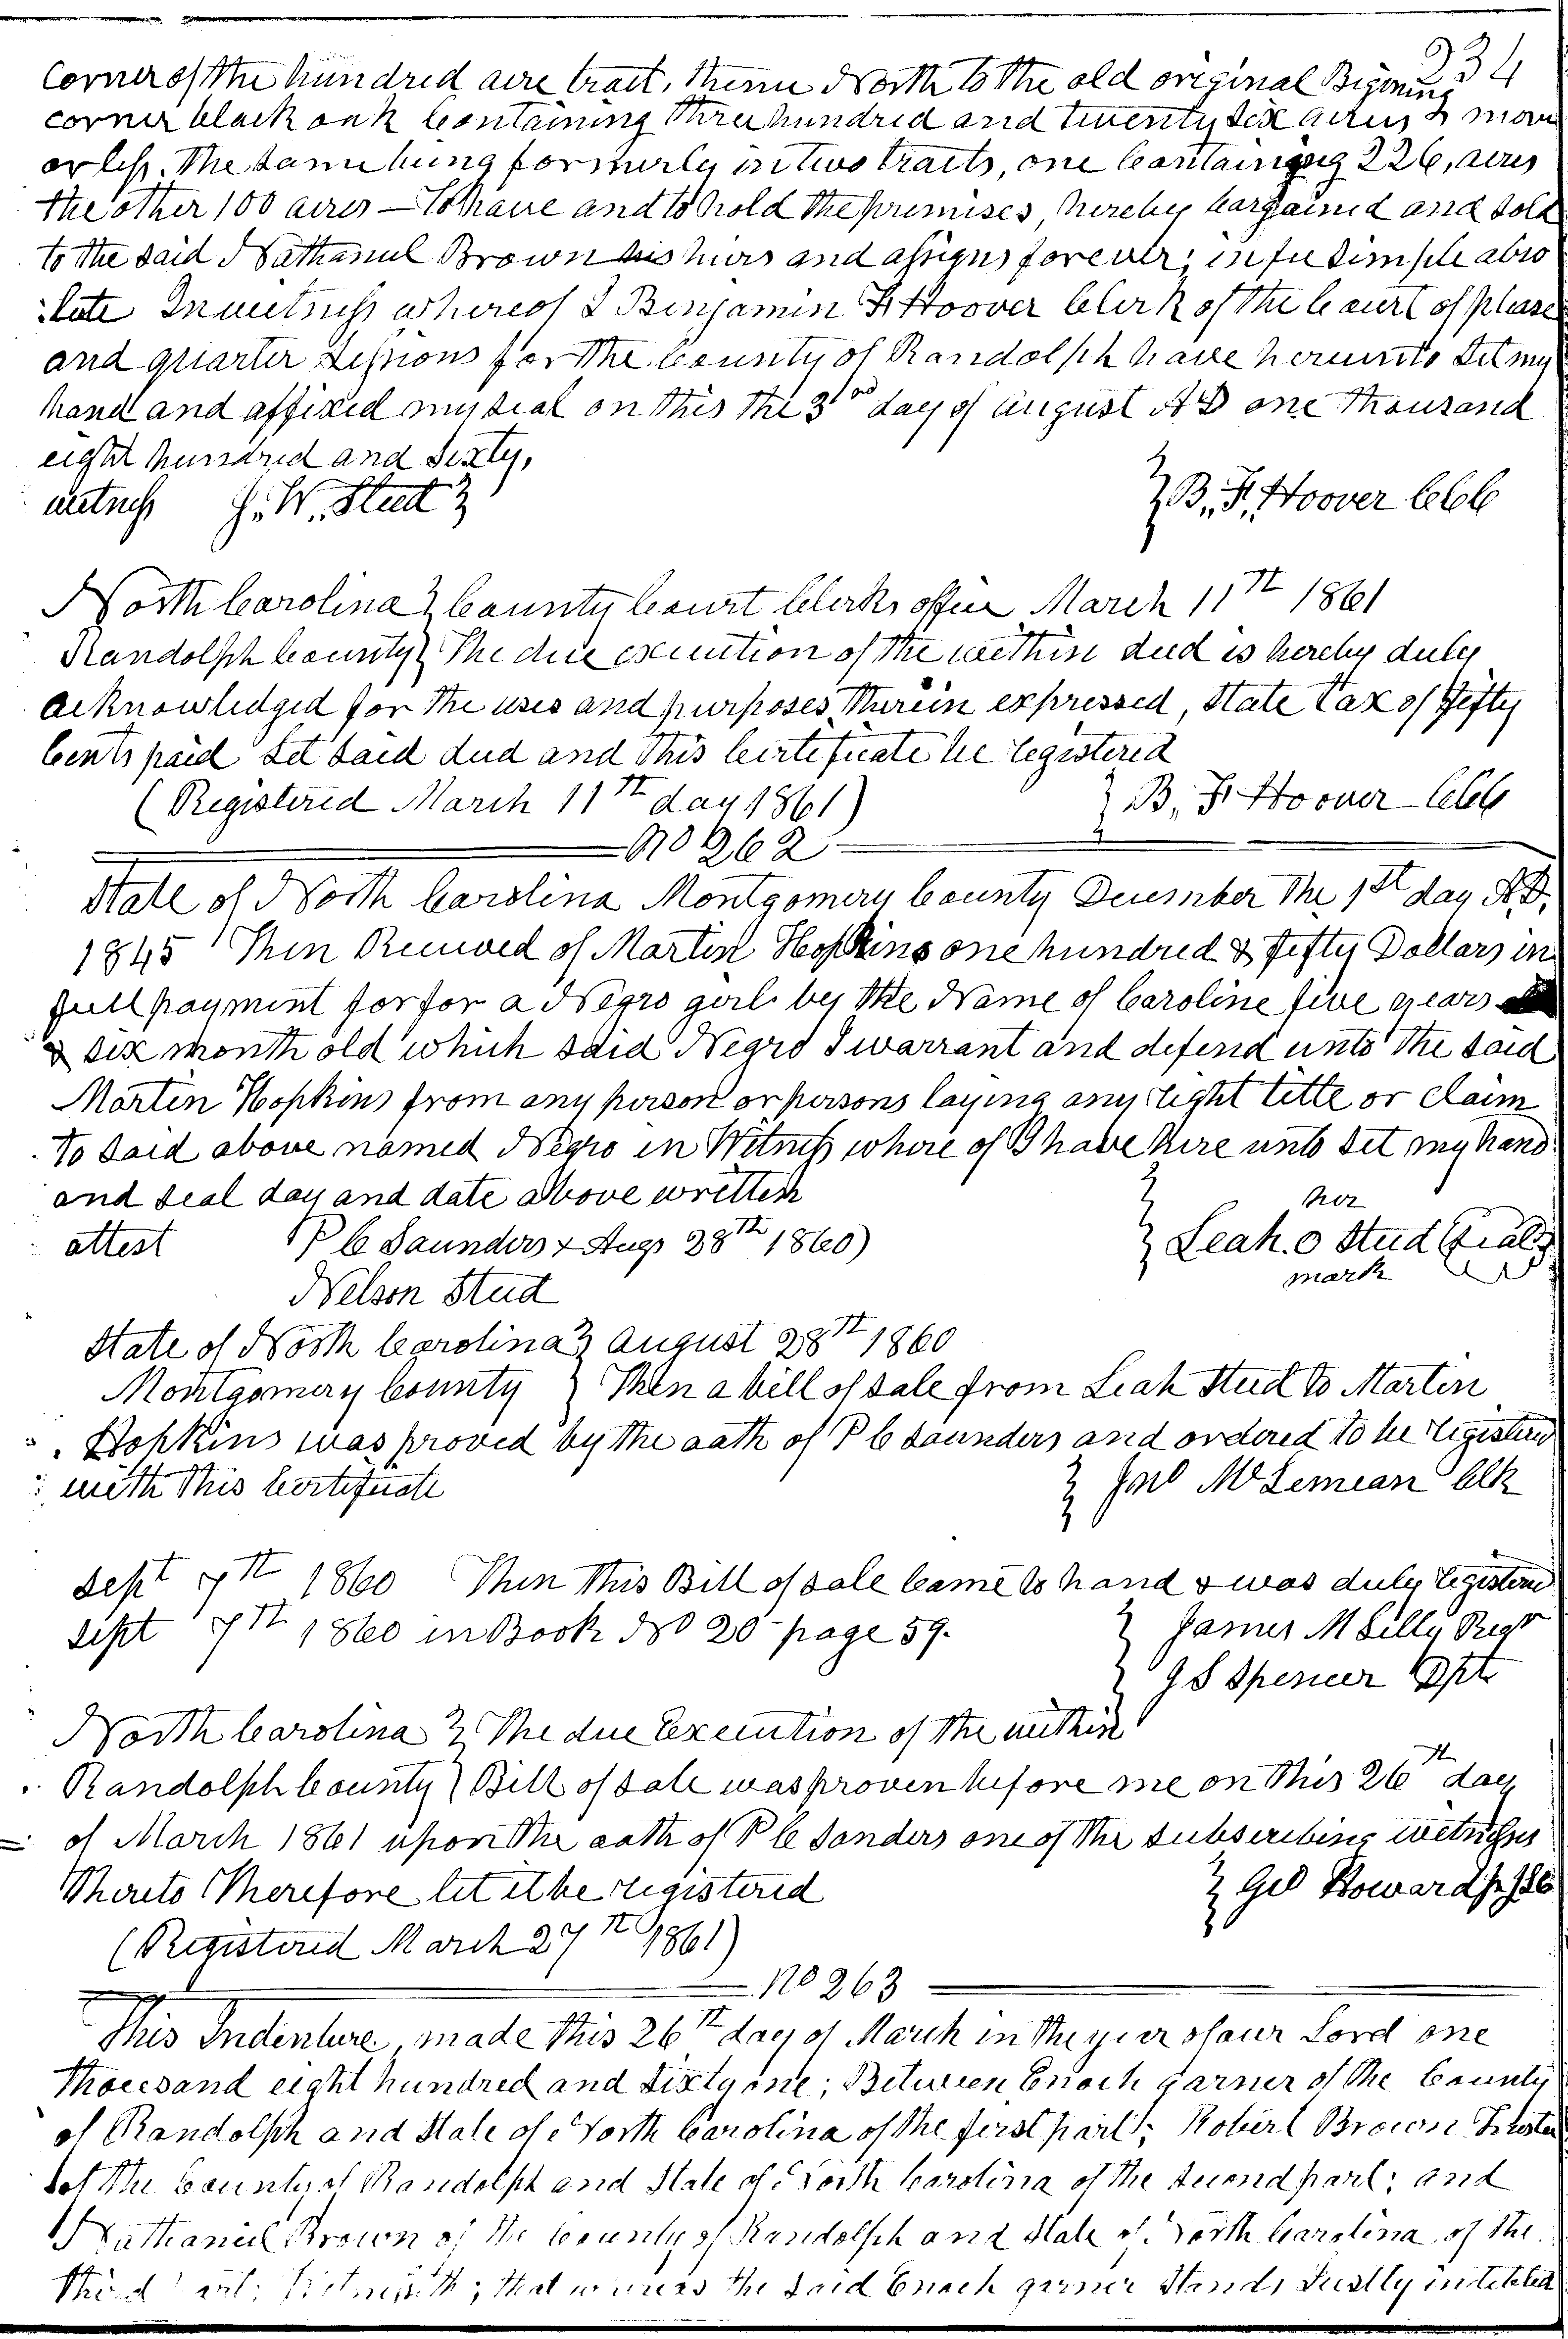 234
Corner of the hundred acre tract, thence North to the old original Bigoning
corner black oak Containing three hundred and twenty six acres & more
or less. The same being formerly in two tracts, one containing 226, acres
the other 100 acres — To have and to hold the premises, hereby bargained and sold
to the said Nathaniel Brown his heirs and assigns forever; in fee simple abso
lute In witness whereof I Benjamin F. Hoover Clerk of the Court of please
and quarter Sessions for the County of Randolph have hereunto set my
hand and affixed my seal on this the 3rd day of august AD one thousand
eight hundred and sixty,
witness J. W. Steed } } B. F. Hoover CCC
North Carolina } County Court Clerks office March 11th 1861
Randolph County } The due execution of the within deed is hereby duly
acknowledged for the uses and purposes therein expressed, State Tax of Fifty
Cents paid Let said deed and this Certificate be registered
(Registered March 11th day 1861) } B. F. Hoover CCC
No 262
State of North Carolina Montgomery County December the 1st day A.D.
1845 Then Received of Martin Hopkins one hundred & fifty Dollars in
full payment for for a Negro girl by the Name of Caroline five years
& six month old which said Negro I warrant and defend unto the said
Martin Hopkins from any person or persons laying any right title or claim
to said above named Negro in Witness where of I have here unto set my hand
and seal day and date above written
attest P C Saunders x Augs 28th 1860) } her
Nelson Steed } Leah. o Steed (seal)
mark
State of North Carolina } August 28th 1860
Montgomery County } Then a bill of sale from Leah Steed to Martin
Hopkins was proved by the oath of P C Saunders and ordered to be registered
with this Certificate } Jno McLemean Clk
Sept 7th 1860 Then this Bill of sale Came to hand & was duly registered
Sept 7th 1860 in Book No 20 - page 59. } James M Lilly Regr
} J S Spencer Dpt
North Carolina } The due Execution of the within
Randolph County } Bill of sale was proven before me on this 26th day
of March 1861 upon the oath of P C Sanders one of the subscribing witnesses
thereto Therefore let it be registered } Geo Howard Jr JSC
(Registered March 27th 1861)
No 263
This Indenture, made this 26th day of March in the year of our Lord one
thousand eight hundred and sixty one; Between Enoch garner of the County
of Randolph and State of North Carolina of the first part; Robert Brown Trustee
of the County of Randolph and State of North Carolina of the second part; and
Nathaniel Brown of the County of Randolph and State of North Carolina of the
third part: Witnesseth; that whereas the said Enoch garner Stands Justly indebted